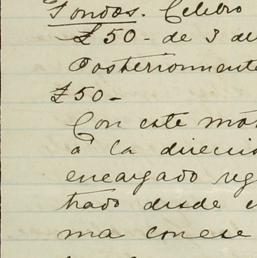 Fondos. Celebro
£50 - de 3 de
Posteriormente
£50 -
Con este mo
á la direcci
encargado reg
trado desde e
ma conese